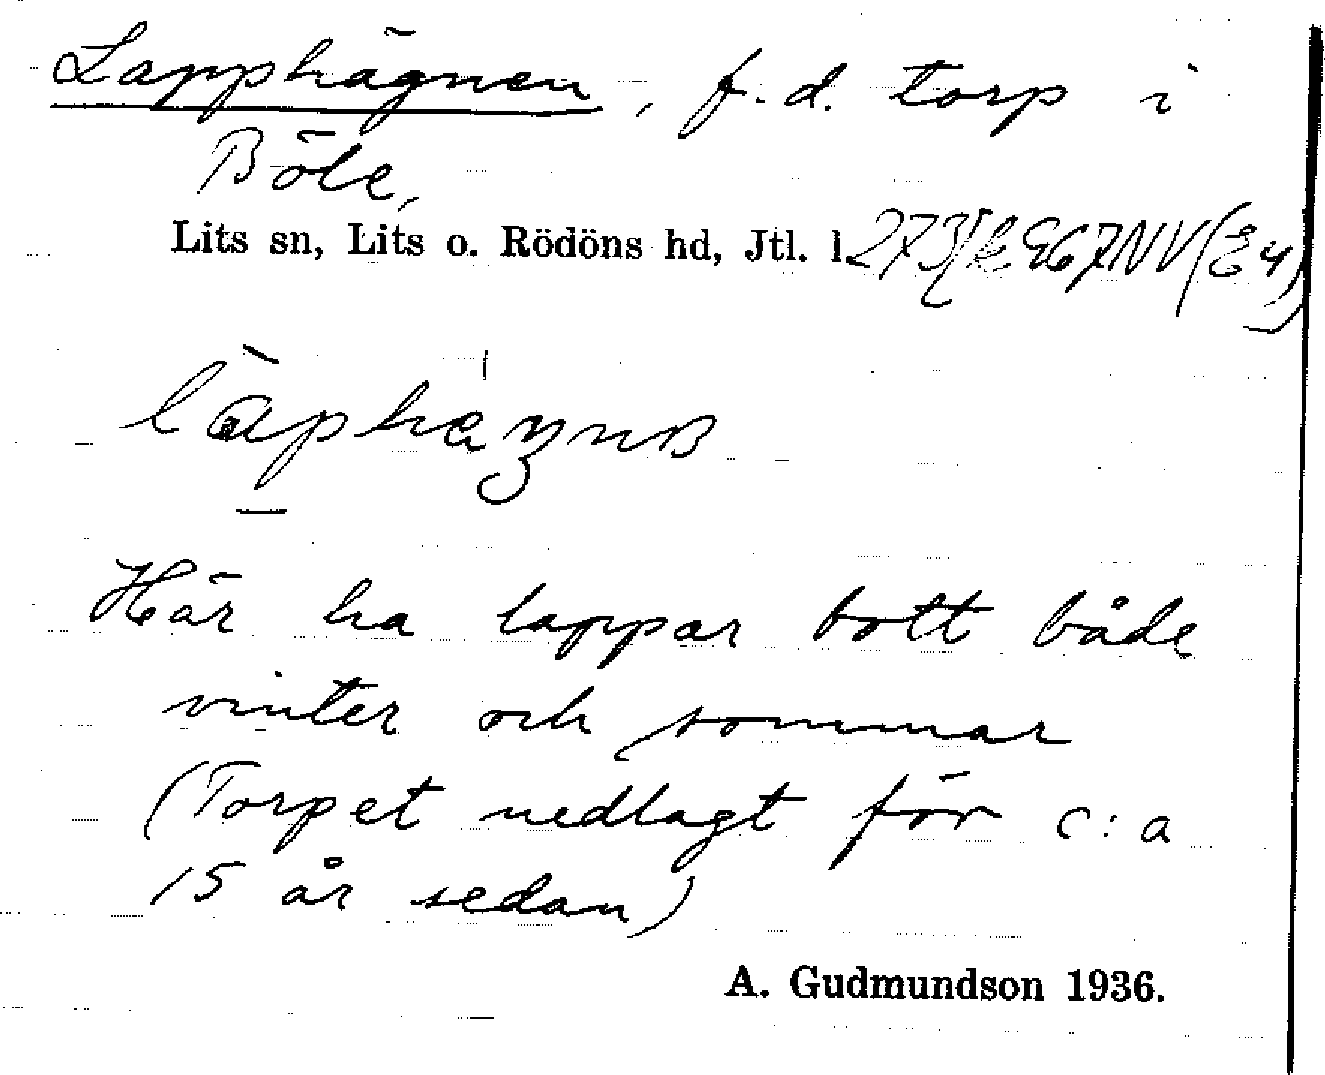 Lapphägnen, f.d. torp i
Böle,
Lits sn, Lits o. Rödöns hd, Jtl. l.
Här ha lappar bott både
vinter och sommar
(Torpet nedlagt för c:a
15 år sedan)
A. Gudmundson 1936.